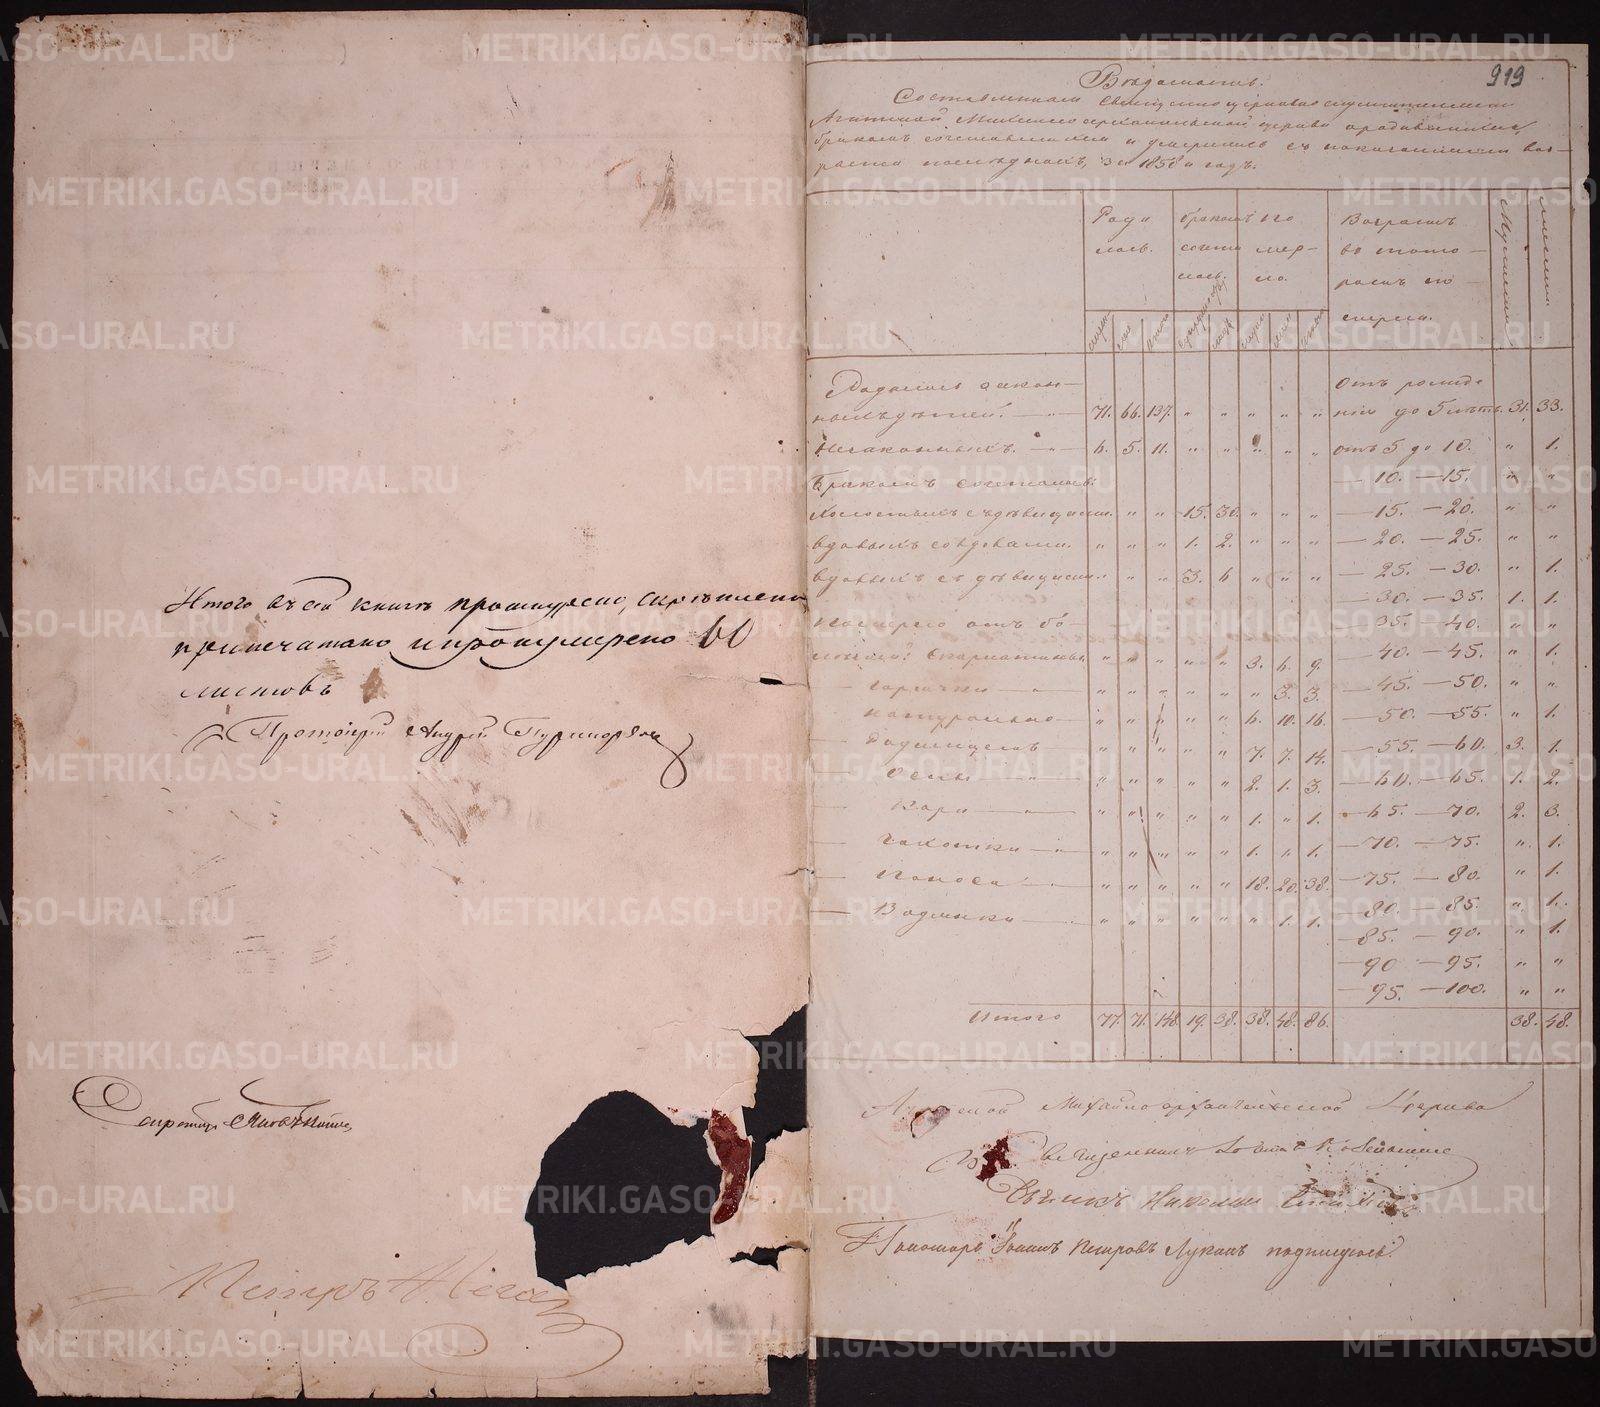 Итого въ сей книгѣ прошнурено, скрѣплено
припечатано и пронумерено
листовъ
Протоіерей Андрей
Секретарь
Петръ
919
Вѣдомость.
Составленная священноцерковнослужителями
Михаилоархангельской церкви о родившихся,
бракомъ сочетавшихся и умершихъ съ показаніемъ воз-
раста послѣднихъ, за 1858 й годъ.
Роди
лось.
бракомъ
сочета
лось.
по
мер-
ло.
Возрастъ
въ кото-
ромъ по
мерли.
Родилось закон-
ныхъ дѣтей. 71. 66. 137. " " " " " Отъ рожде
нія до 5 лѣтъ. 31. 33.
Незаконныхъ. 6. 5. 11. " " " " " отъ 5 до 10. " 1.
Бракомъ сочеталось: — 10. — 15. " "
Холостыхъ съ дѣвицами. " " " 15. 30. " " " — 15. — 20. " "
вдовыхъ со вдовами. " " " 1. 2. " " " — 20. — 25. " "
вдовыхъ съ дѣвицами. " " " 3. 6 " " " — 25. — 30. " 1.
— 30. — 35. 1. 1.
Померло отъ бо- — 35. — 40. " "
" " " " " 3. 6. 9. — 40. — 45. " 1.
— горячки — " " " " " " 3. 3. — 45. — 50. " "
натурально — " " " " " 6. 10. 16. — 50. — 55. " 1.
— Родимцемъ " " " " " 7. 7. 14. — 55. — 60. 3. 1.
— Оспы " " " " " 2. 1. 3. — 60. — 65. 1. 2.
— Кори " " " " " 1. " 1. — 65. — 70. 2. 3.
— Чахотки " " " " " 1. " 1. — 70. — 75. " 1.
— Поноса " " " " " 18. 20. 38. — 75. — 80. " 1.
— Водянки " " " " " " 1. 1. — 80. — 85. " 1.
— 85. — 90. " 1.
— 90 — 95. " "
— 95. — 100. " "
Итого 77. 71. 148. 19. 38. 38. 48. 86. 38. 48.
Михайлоархангельской Церкви
Священникъ
Николай
Пономарь Іоаннъ Петровъ Лукинъ подписуюсь.
METRIKI.GASO-URAL.RU